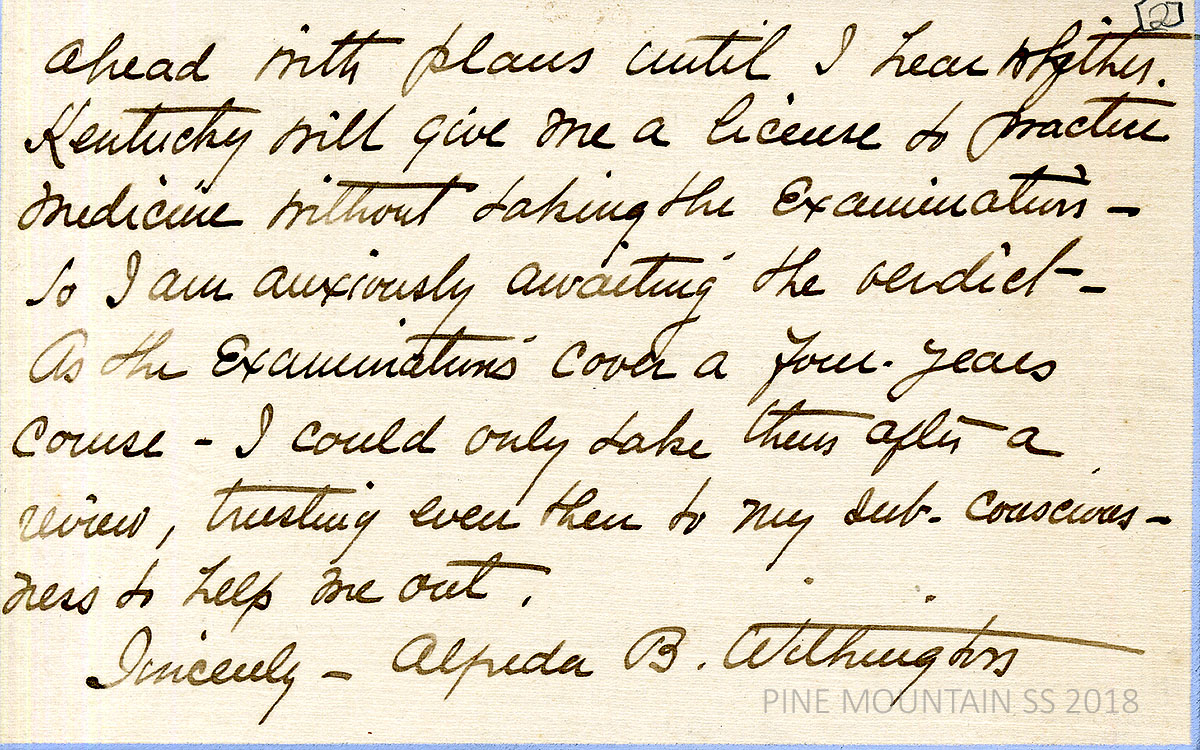 2
ahead with plans until I hear whether
Kentucky will give me a license to practice
medicine without taking the Examinations –
So I am anxiously awaiting the verdict –
As the Examinations cover a four-years
course – I could only take them after a
review, trusting even then to my sub-conscious-
ness to help me out.
Sincerely – Alfreda B. Withington
PINE MOUNTAIN SS 2018